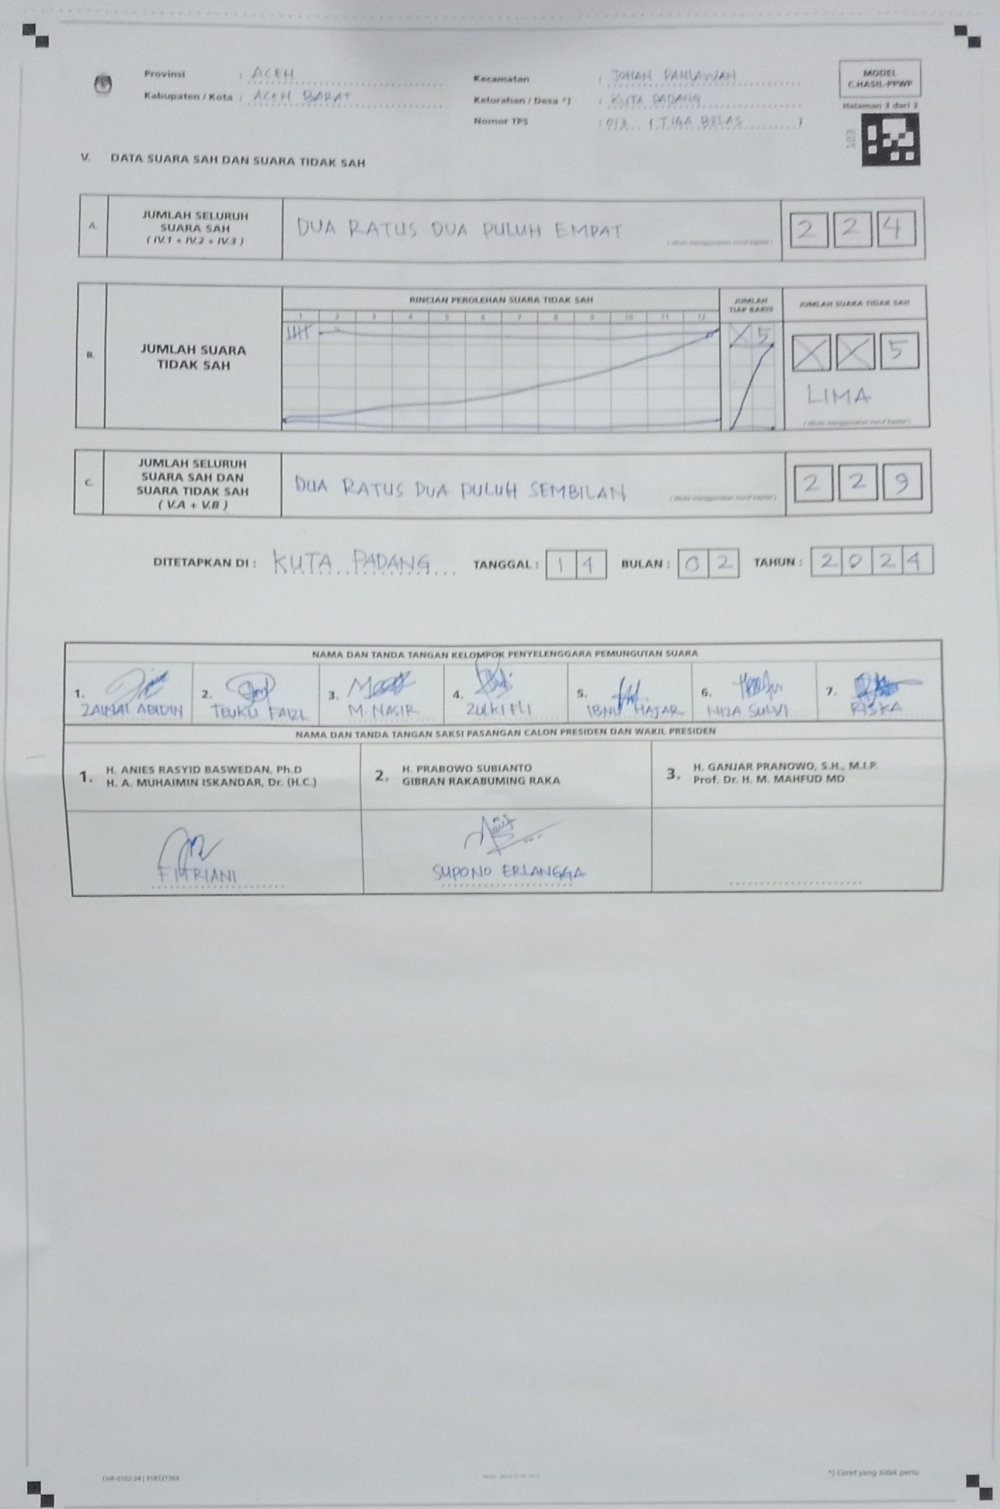 Provinsi : ACEH
Kabupaten / Kota : ACEH BARAT
Kecamatan : JOHAN PAHLAWAN
Kelurahan / Desa *) : KUTA PADANG
Nomor TPS : 013 ( TIGA BELAS )
MODEL
C.HASIL-PPWP
Halaman 3 dari 3
103
V. DATA SUARA SAH DAN SUARA TIDAK SAH
A. JUMLAH SELURUH SUARA SAH ( IV.1 + IV.2 + IV.3 ) DUA RATUS DUA PULUH EMPAT 2 2 4
RINCIAN PEROLEHAN SUARA TIDAK SAH
JUMLAH TIAP BARIS
JUMLAH SUARA TIDAK SAH
1 2 3 4 5 6 7 8 9 10 11 12
B. JUMLAH SUARA TIDAK SAH X 5 X X 5
LIMA
C. JUMLAH SELURUH SUARA SAH DAN SUARA TIDAK SAH ( V.A + V.B ) DUA RATUS DUA PULUH SEMBILAN 2 2 9
DITETAPKAN DI : KUTA PADANG TANGGAL : 1 4 BULAN : 0 2 TAHUN : 2 0 2 4
NAMA DAN TANDA TANGAN KELOMPOK PENYELENGGARA PEMUNGUTAN SUARA
1. ZAINAL ABIDIN
2. TEUKU FAIZL
3. M. NASIR
4. ZULKIFLI
5. IBNU HAJAR
6. NIZA SULVI
7. RISKA
NAMA DAN TANDA TANGAN SAKSI PASANGAN CALON PRESIDEN DAN WAKIL PRESIDEN
1. H. ANIES RASYID BASWEDAN, Ph.D
H. A. MUHAIMIN ISKANDAR, Dr. (H.C.)
2. H. PRABOWO SUBIANTO
GIBRAN RAKABUMING RAKA
3. H. GANJAR PRANOWO, S.H., M.I.P.
Prof. Dr. H. M. MAHFUD MD
FITRIANI
SUPONO ERLANGGA
*) Coret yang tidak perlu